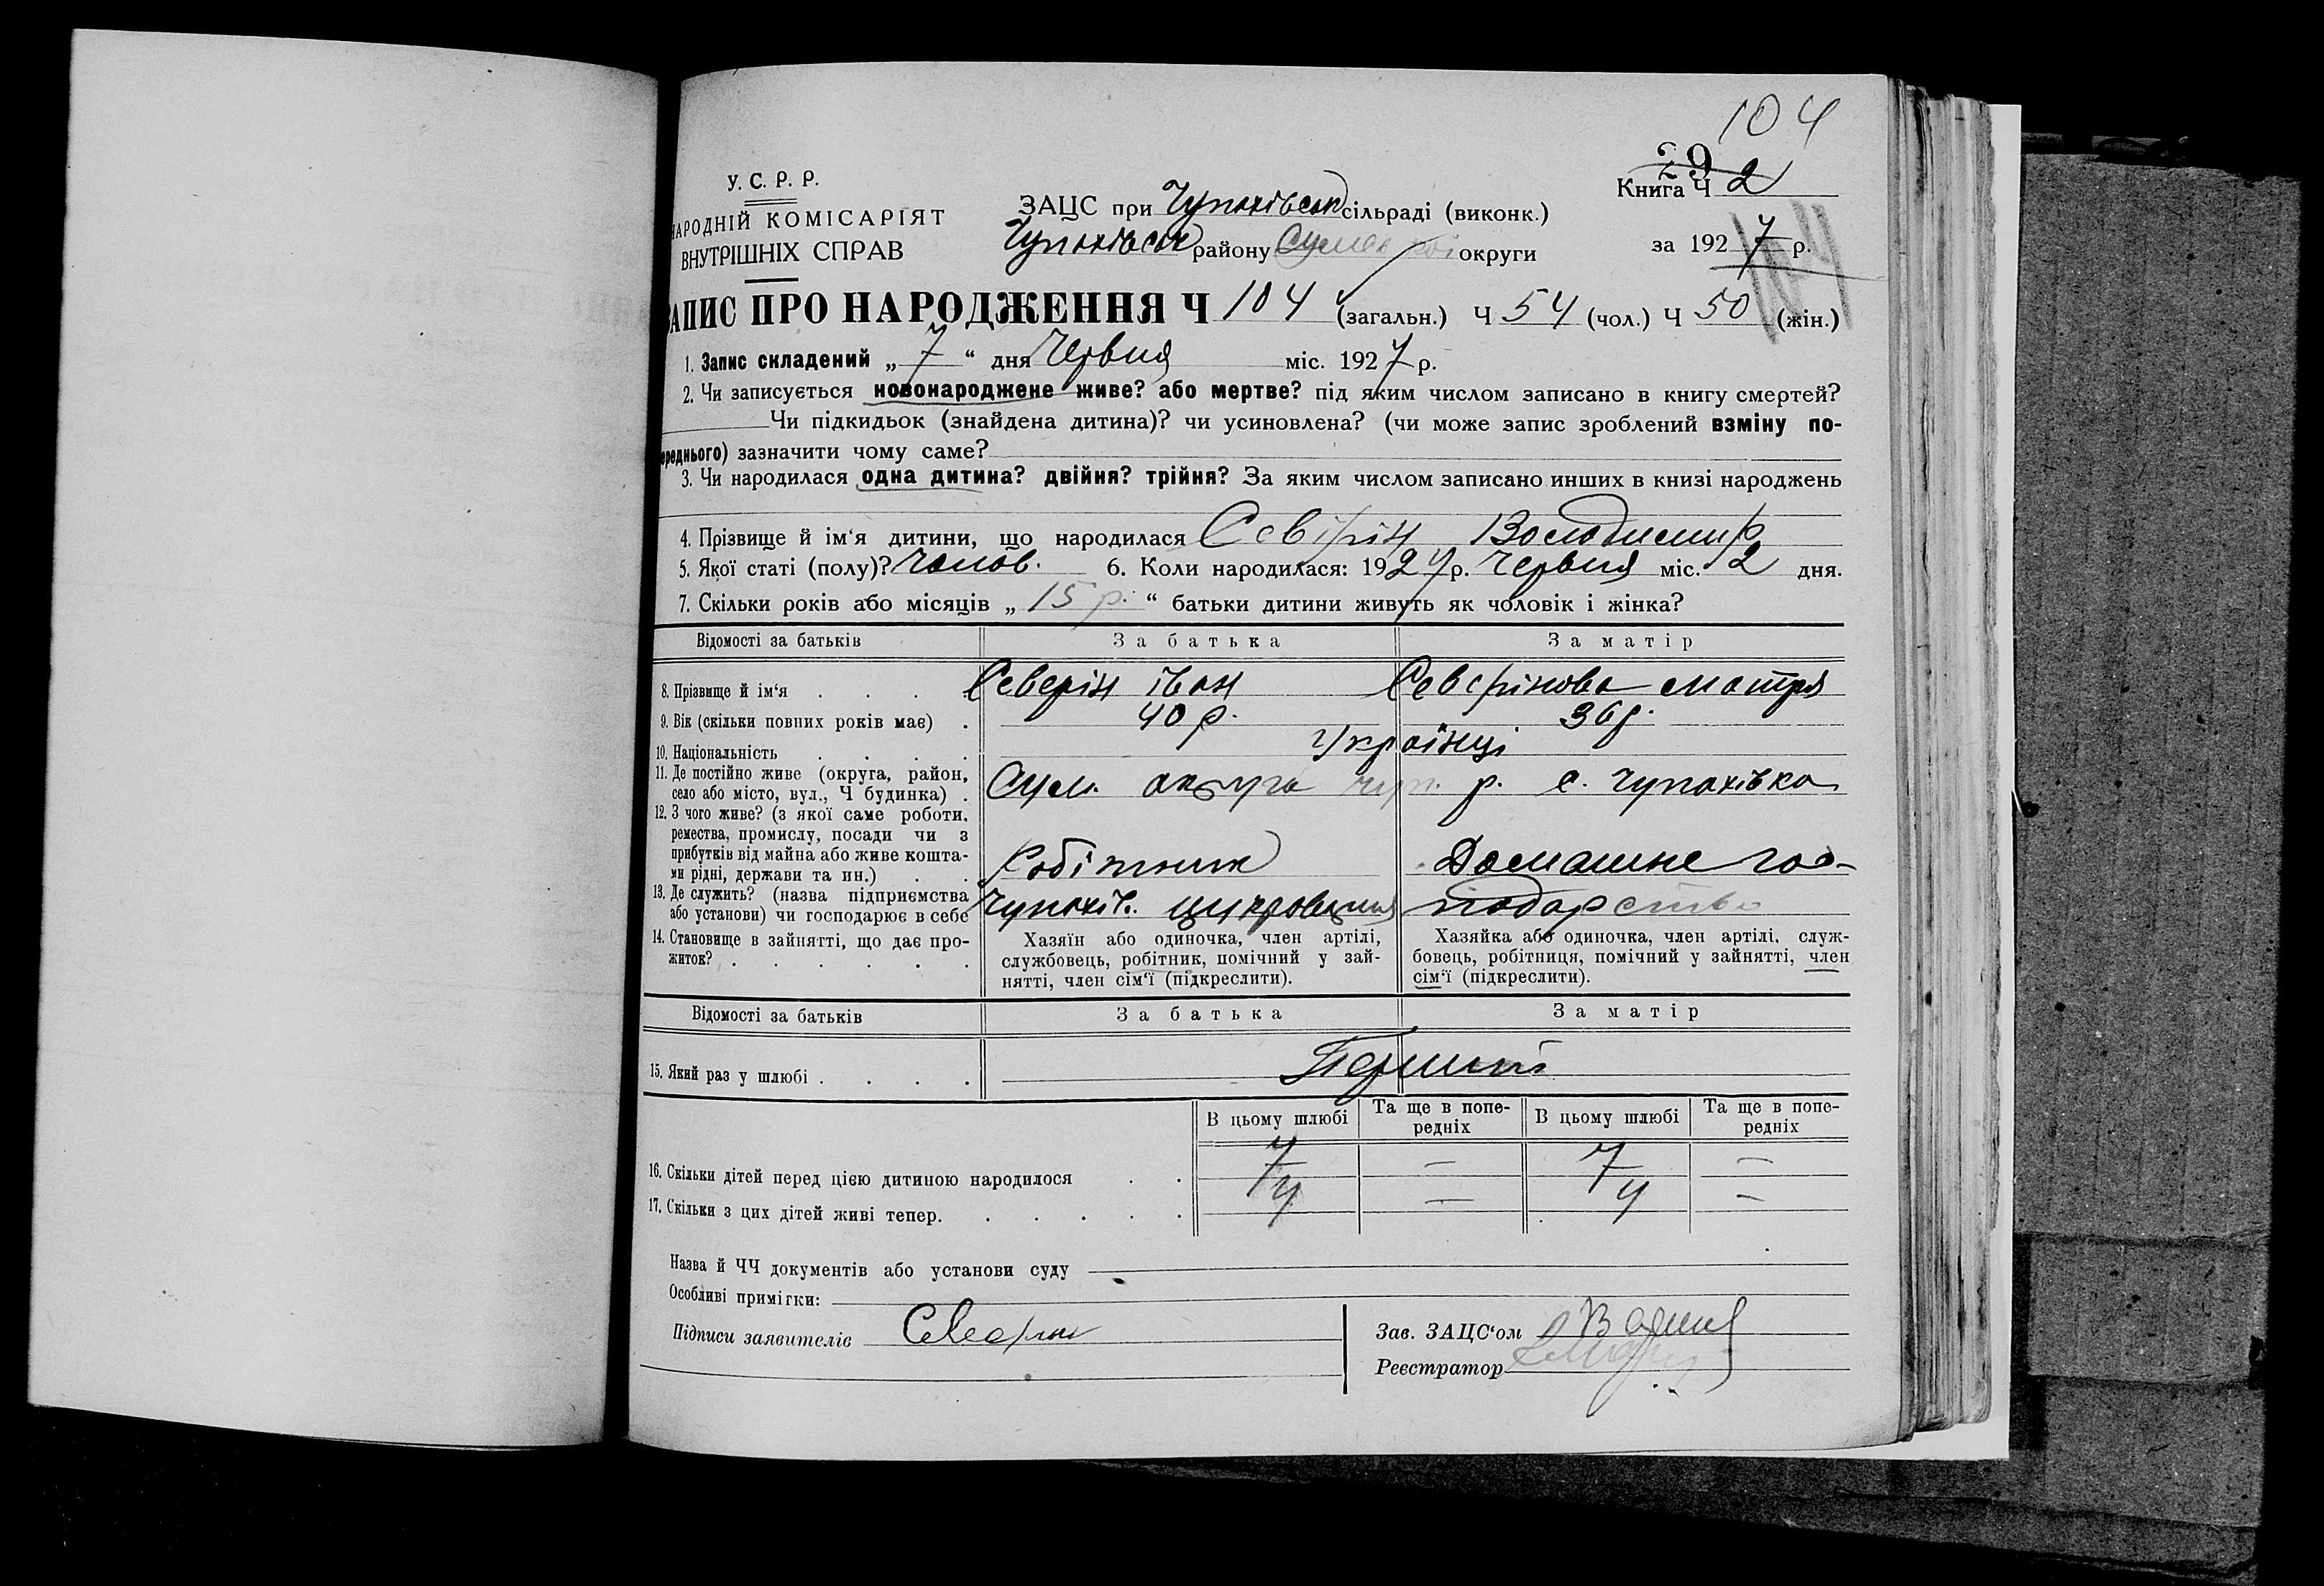 104
29
У. С. Р. Р.
Книга Ч 2
НАРОДНІЙ КОМІСАРІЯТ
ВНУТРІШНІХ СПРАВ
ЗАЦС при Чупахівськ сільраді (виконк.)
Чупахівськ району Сумської округи
за 1927 р.
104
ЗАПИС ПРО НАРОДЖЕННЯ Ч 104 (загальн.) Ч 54 (чол.) Ч 50 (жін.)
1. Запис складений „ 7 “ дня Червня міс. 1927 р.
2. Чи записується новонароджене живе? або мертве? під яким числом записано в книгу смертей?
Чи підкидьок (знайдена дитина)? чи усиновлена? (чи може запис зроблений взміну по-
ереднього) зазначити чому саме?
3. Чи народилася одна дитина? двійня? трійня? За яким числом записано инших в книзі народжень
4. Прізвище й ім‘я дитини, що народилася Севірін Володимир
5. Якої статі (полу)? Чолов. 6. Коли народилася: 1927 р. Червня міс. 2 дня.
7. Скільки років або місяців „ 15 р. “ батьки дитини живуть як чоловік і жінка?
Відомості за батьків За батька За матір
8. Прізвище й ім‘я . . . . Северін іван Севєрінова мотря
9. Вік (скільки повних років має) . 40 р. 36 р.
10. Національність . . . . Українці
11. Де постійно живе (округа, район,
село або місто, вул., Ч будинка) . Сум. округа чуп. р. с. Чупахівка
12. З чого живе? (з якої саме роботи,
ремества, промислу, посади чи з
прибутків від майна або живе кошта-
ми рідні, держави та ин.) . . Робітник Домашнє гос-
13. Де служить? (назва підприємства
або установи) чи господарює в себе Чупахів. цукроварня подарство
14. Становище в зайнятті, що дає про-
житок? . . . . . .
Хазяїн або одиночка, член артілі,
службовець, робітник, помічний у зай-
нятті, член сім‘ї (підкреслити).
Хазяйка або одиночка, член артілі, служ-
бовець, робітниця, помічний у зайнятті, член
сім‘ї (підкреслити).
Відомості за батьків За батька За матір
15. Який раз у шлюбі . . . . Перший
В цьому шлюбі Та ще в попе-
редніх В цьому шлюбі Та ще в попе-
редніх
16. Скільки дітей перед цією дитиною народилося . . 7 — 7 —
17. Скільки з цих дітей живі тепер. . . . . . 4 — 4 —
Назва й ЧЧ документів або установи суду
Особливі примітки:
Підписи заявителів Северин
Зав. ЗАЦС‘ом
Реєстратор